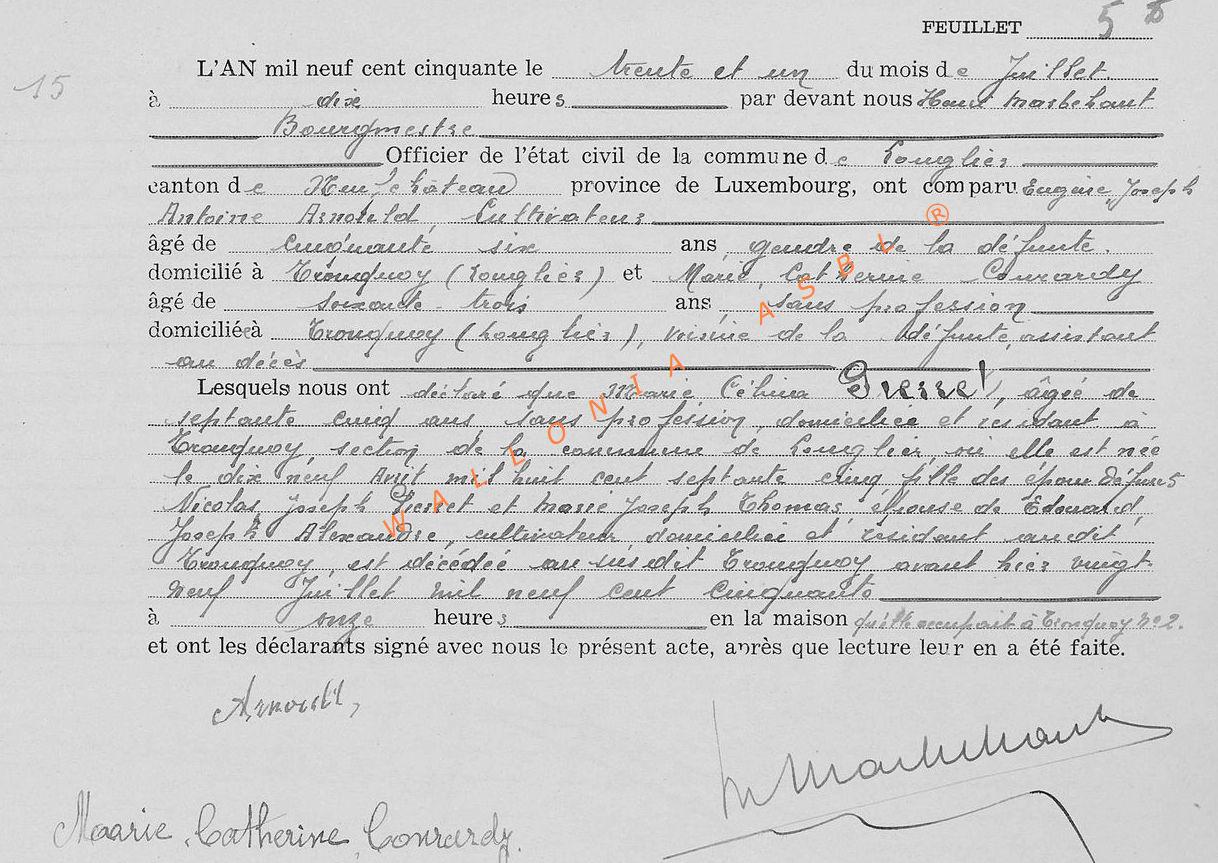 FEUILLET 5
15
L'AN mil neuf cent cinquante le trente et un du mois de Juillet
à dix heures par devant nous Henri Marbehant
Bourgmestre
Officier de l'état civil de la commune de Longlier
canton de Neufchâteau province de Luxembourg, ont comparu Eugène, Joseph
Antoine Arnould, Cultivateur
âgé de cinquante six ans, gendre de la défunte.
domicilié à Tronquoy (Longlier) et Marie, Catherine Conrardy
âgé de soixante-trois ans, sans profession
domiciliée à Tronquoy (Longlier), voisine de la défunte, assistant
au décès
Lesquels nous ont déclaré que Marie, Célina Gierret, âgée de
septante cinq ans, sans profession, domiciliée et résidant à
Tronquoy, section de la commune de Longlier, où elle est née
le dix neuf Avril mil huit cent septante cinq, fille des époux défunts
Nicolas, Joseph Gierret et Marie Joseph Thomas, épouse de Edouard,
Joseph Alexandre, cultivateur domicilié et résidant audit
Tronquoy, est décédée au susdit Tronquoy avant hier vingt-
neuf Juillet mil neuf cent cinquante
à onze heures en la maison qu'elle occupait à Tronquoy N°2.
et ont les déclarants signé avec nous le présent acte, après que lecture leur en a été faite.
Arnould,
Marbehant
Maarie, Catherine, Conrardy.
WALLONIA ASBL ®